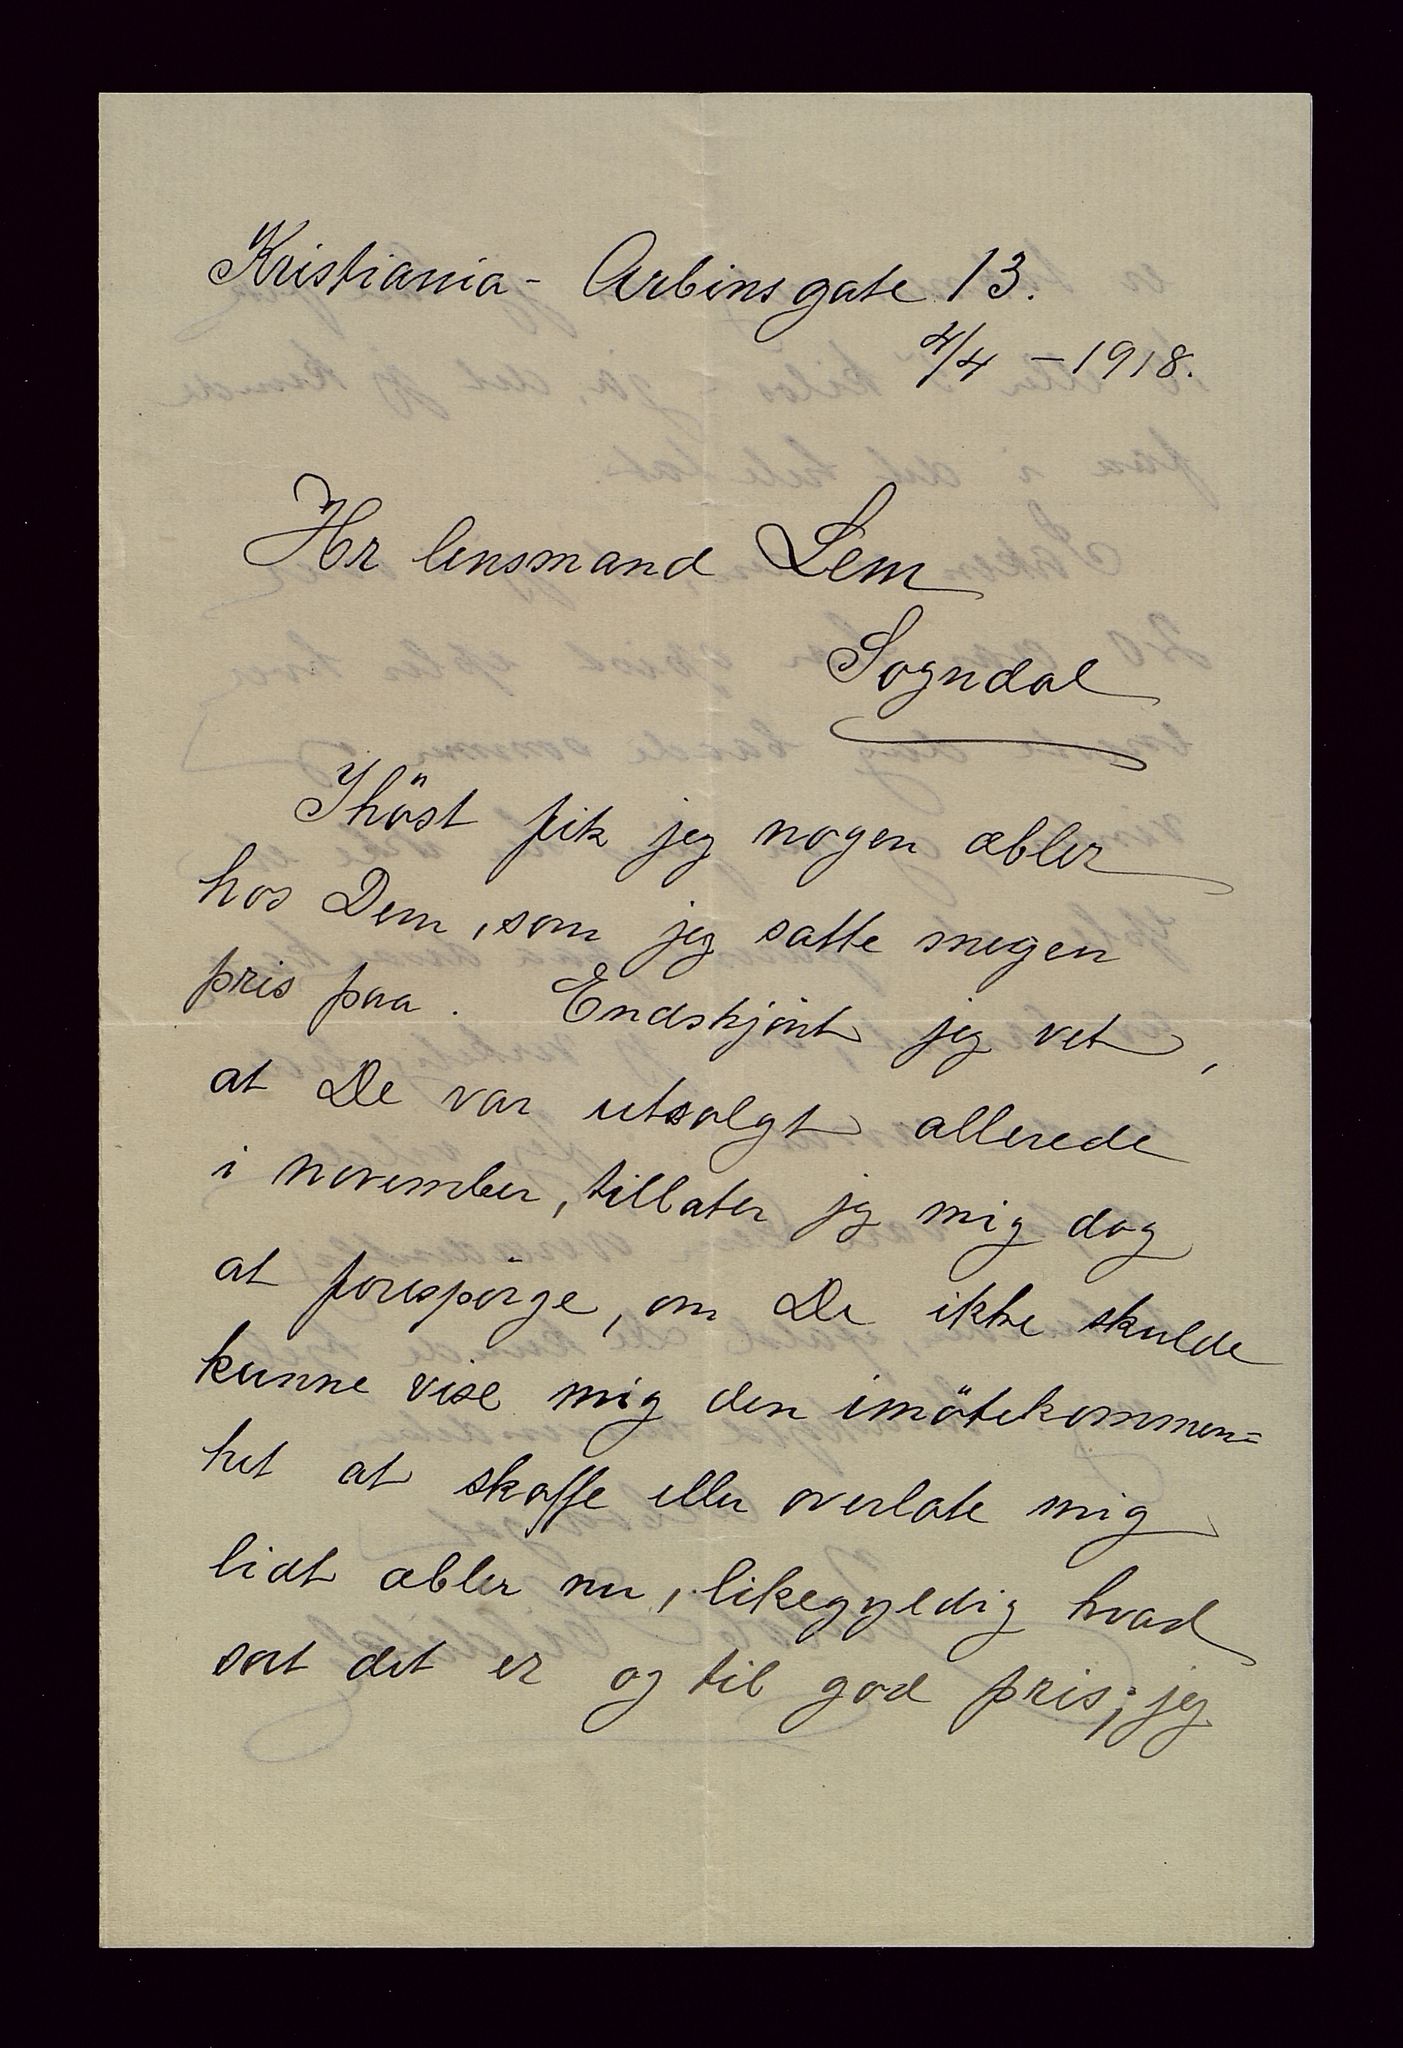 Kristiania - Arbinsgate 13.
4/4 - 1918.
Hr lensmand Lem
Sogndal
Ihöst fik jeg nogen æbler
hos Dem, som jeg satte megen
pris paa. Endskjönt jeg vet,
at De var utsolgt allerede
i november, tillater jeg mig dog
at forespörge, om De ikke skulde
kunne vise mig den imötekommen=
het at skaffe eller overlate mig
lidt æbler nu, likegyldig hvad
sort det er og til god pris; jeg